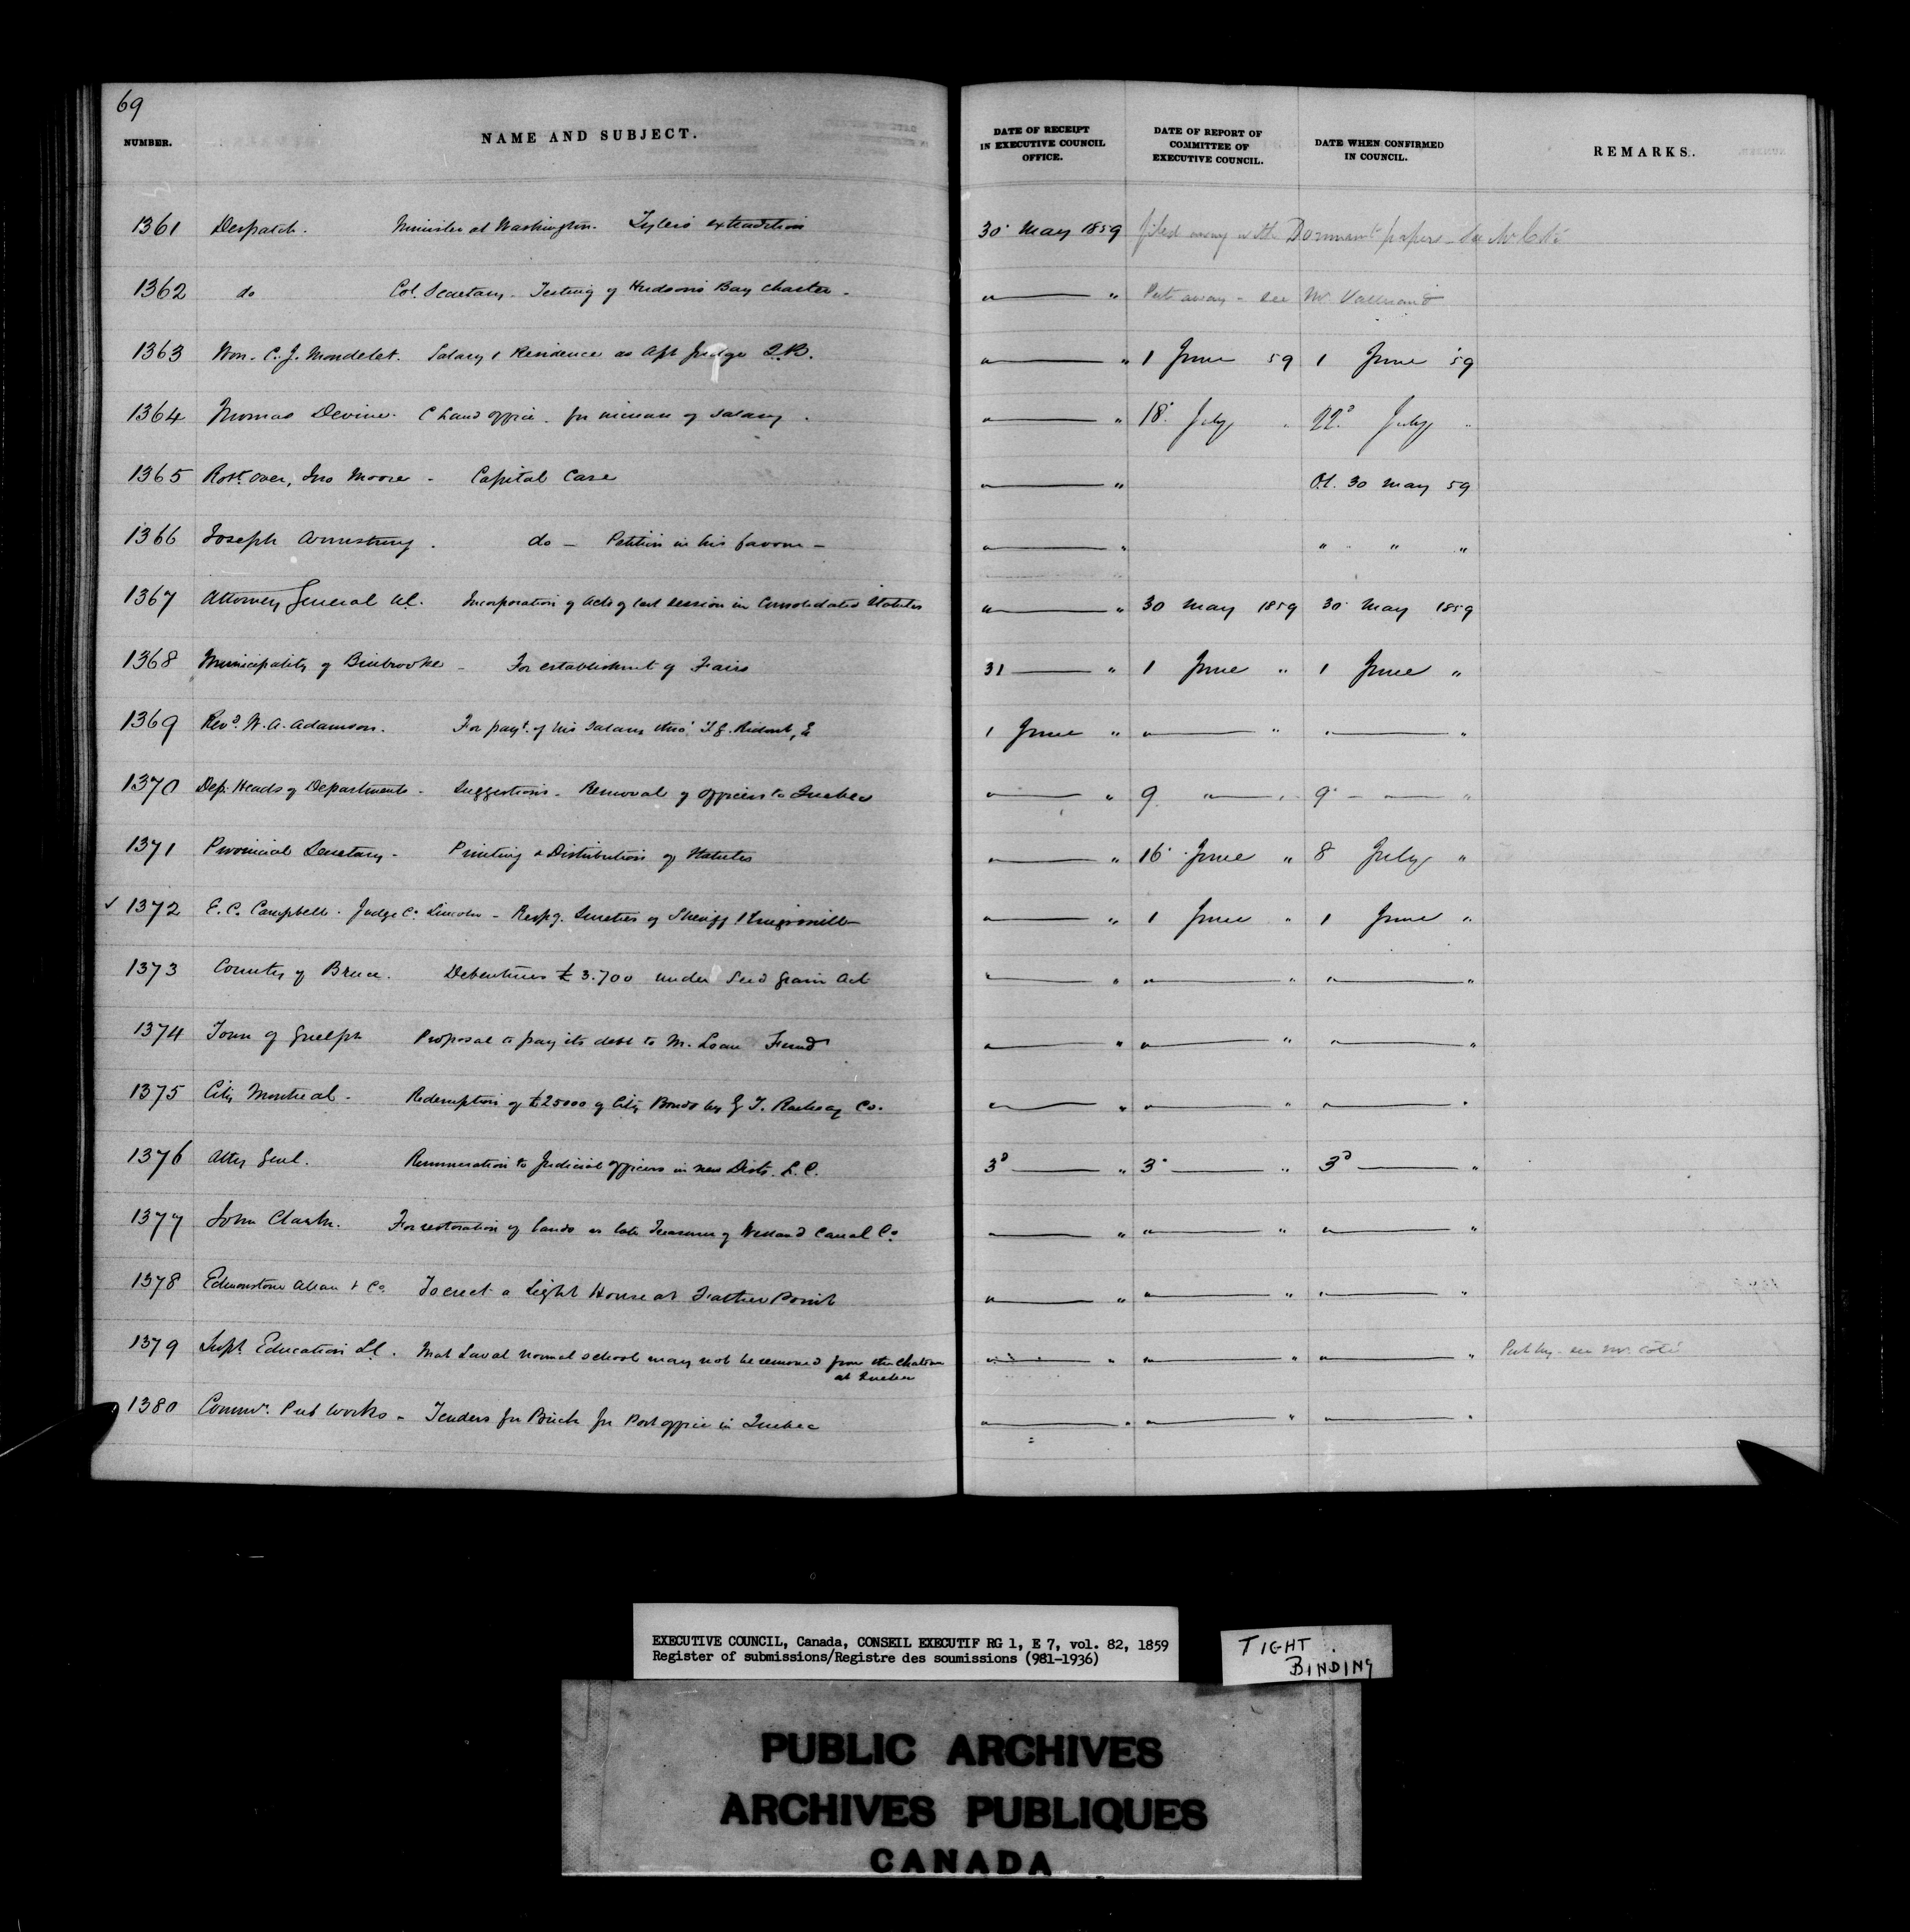 69
NUMBER. NAME AND SUBJECT. DATE OF RECEIPT IN EXECUTIVE COUNCIL OFFICE. DATE OF REPORT OF COMMITTEE OF EXECUTIVE COUNCIL. DATE WHEN CONFIRMED IN COUNCIL. REMARKS.
1361 Despatch. Minister at Washington. Tyler's extradition 30 May 1859 filed away with Dormant papers - see Mr Coté
1362 do Col. Secretary - Testing of Hudson's Bay Charter - " " Put away - see Mr
1363 Hon. C. J. Mondelet. Salary & Residence as Ast Judge Q.B. " " 1 June 59 1 June 59
1364 Thomas Devine. C Land office. for increase of salary. " " 18 July " 22d July "
1365 Robt. Over, Jno Moore - Capital Case " " O.C. 30 May 59
1366 Joseph Armstrong. do - Petition in his favour - " " " " "
1367 Attorney General U.C. Incorporation of Acts of last session in Consolidated Statutes " " 30 May 1859 30 May 1859
1368 Municipality of Binbrooke - For establishment of Fairs 31 " 1 June " 1 June "
1369 Revd. W. A. Adamson. For payt. of his salary thro' T. G. Ridout, 1 June " " " " "
1370 Dep. Heads of Departments - Suggestions - Removal of officers to Quebec " " 9 " " 9 " "
1371 Provincial Secretary - Printing & Distribution of Statutes " " 16 June " 8 July "
✓ 1372 E. C. Campbell. Judge Co. Lincoln - Respg. Sureties of Sheriff Kingsmill " " 1 June " 1 June "
1373 County of Bruce. Debentures £3.700 under Seed Grain Act " " " " " "
1374 Town of Guelph Proposal to pay its debt to M. Loan Fund " " " " " "
1375 City Montreal - Redemption of £25000 of City Bonds by G. T. Railway Co. " " " " " "
1376 Atty Genl. Remuneration to Judicial officers in new Dists. L. C. 3d " 3 " 3d "
1377 John Clark. For restoration of lands as late Treasurer of Welland Canal Co " " " " " "
1378 Edmonstone Allan & Co. To erect a Light House at Father Point " " " " " "
1379 Supt. Education L.C. That Laval Normal school may not be removed from the Chateau at Quebec " " " " " " Put by - see Mr. Coté
1380 Commr. Pub Works - Tenders for Brick for Post office in Quebec " " " " " "
EXECUTIVE COUNCIL, Canada, CONSEIL EXECUTIF RG 1, E 7, vol. 82, 1859
Register of submissions/Registre des soumissions (981-1936)
TIGHT BINDING
PUBLIC ARCHIVES
ARCHIVES PUBLIQUES
CANADA